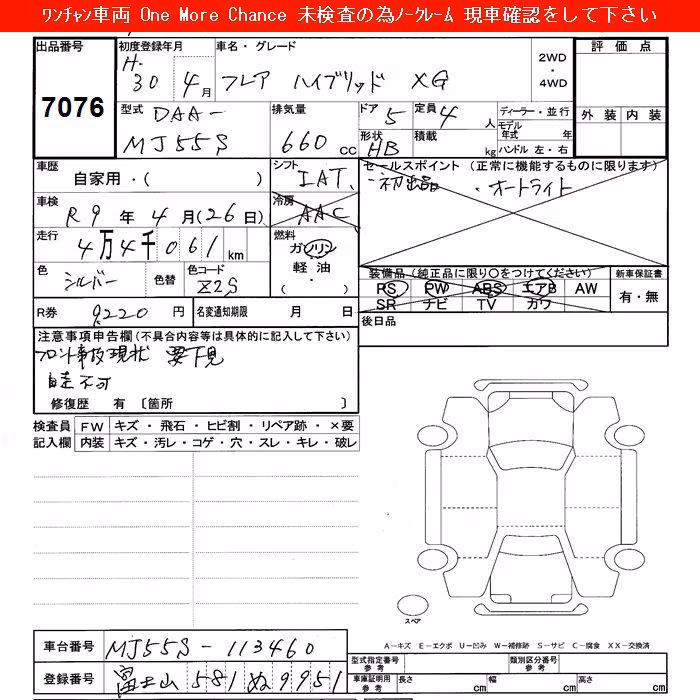 ﾜﾝﾁｬﾝ車両 One More Chance 未検査の為ﾉｰｸﾚｰﾑ 現車確認をして下さい
出品番号 7076
初度登録年月 H. 30 4月
車名・グレード フレア ハイブリッド XG
2WD ・ 4WD
評価点
外装 内装
型式 DAA- MJ55S
排気量 660 cc
ドア 5
定員 4 人
形状 HB
積載 kg
ディーラー・並行
モデル年式 年
ハンドル 左・右
車歴 自家用・( )
シフト IAT
セールスポイント (正常に機能するものに限ります)
・初出品 ・オートライト
車検 R9年4月(26日)
冷房 AAC
走行 4万4千061km
燃料 ガソリン 軽油 ・ ( )
色 シルバー 色替
色コード Z2S
装備品(純正品に限り○をつけてください)
PS PW ABS エアB AW
SR ナビ TV カワ
新車保証書 有・無
R券 9220円
名変通知期限 月 日
後日品
注意事項申告欄(不具合内容等は具体的に記入して下さい)
フロント事故現状 要下見
自走不可
修復歴 有 〔箇所 〕
検査員記入欄
FW キズ・飛石・ヒビ割・リペア跡・×要
内装 キズ・汚レ・コゲ・穴・スレ・キレ・破レ
スペア
A-キズ E-エクボ U-凹み W-補修跡 S-サビ C-腐食 XX-交換済
車台番号 MJ55S-113460
登録番号 富士山 581 ぬ 9951
型式指定番号 参考
類別区分番号 参考
車庫証明用 参考
長さ cm 幅 cm 高さ cm